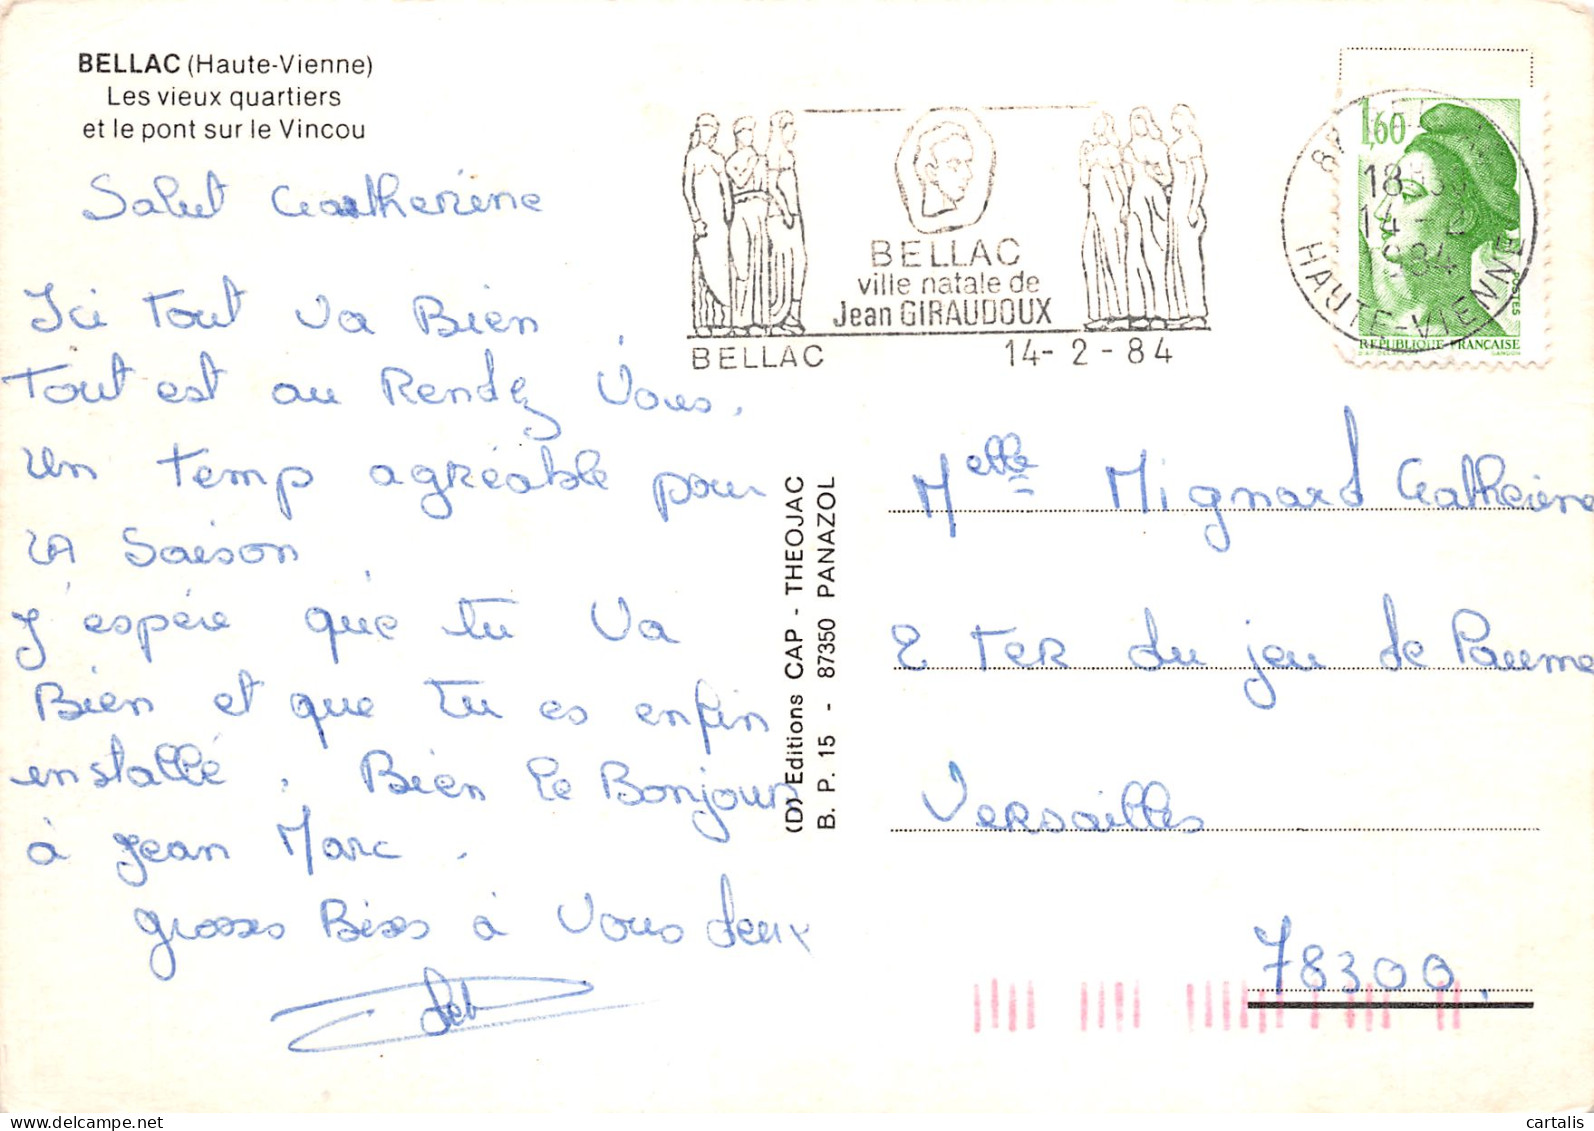 BELLAC (Haute-Vienne)
Les vieux quartiers
et le pont sur le Vincou
Salut Catherine
Ici tout va Bien
Tout est au Rendez Vous.
un temp agréable pour
LA Saison
J'espère que tu va
Bien et que tu es enfin
installé. Bien le Bonjour
à Jean Marc.
grosses Bises à Vous deux
BELLAC
ville natale de
Jean GIRAUDOUX
BELLAC 14-2-84
1,60
18
14-2
1984
HAUTE-VIENNE
POSTES
REPUBLIQUE FRANÇAISE
GANDON
(D) Editions CAP - THEOJAC
B. P. 15 - 87350 PANAZOL
Melle Mignard Catherine
2 TER du jeu de Paume
Versailles
78300.
cartalis